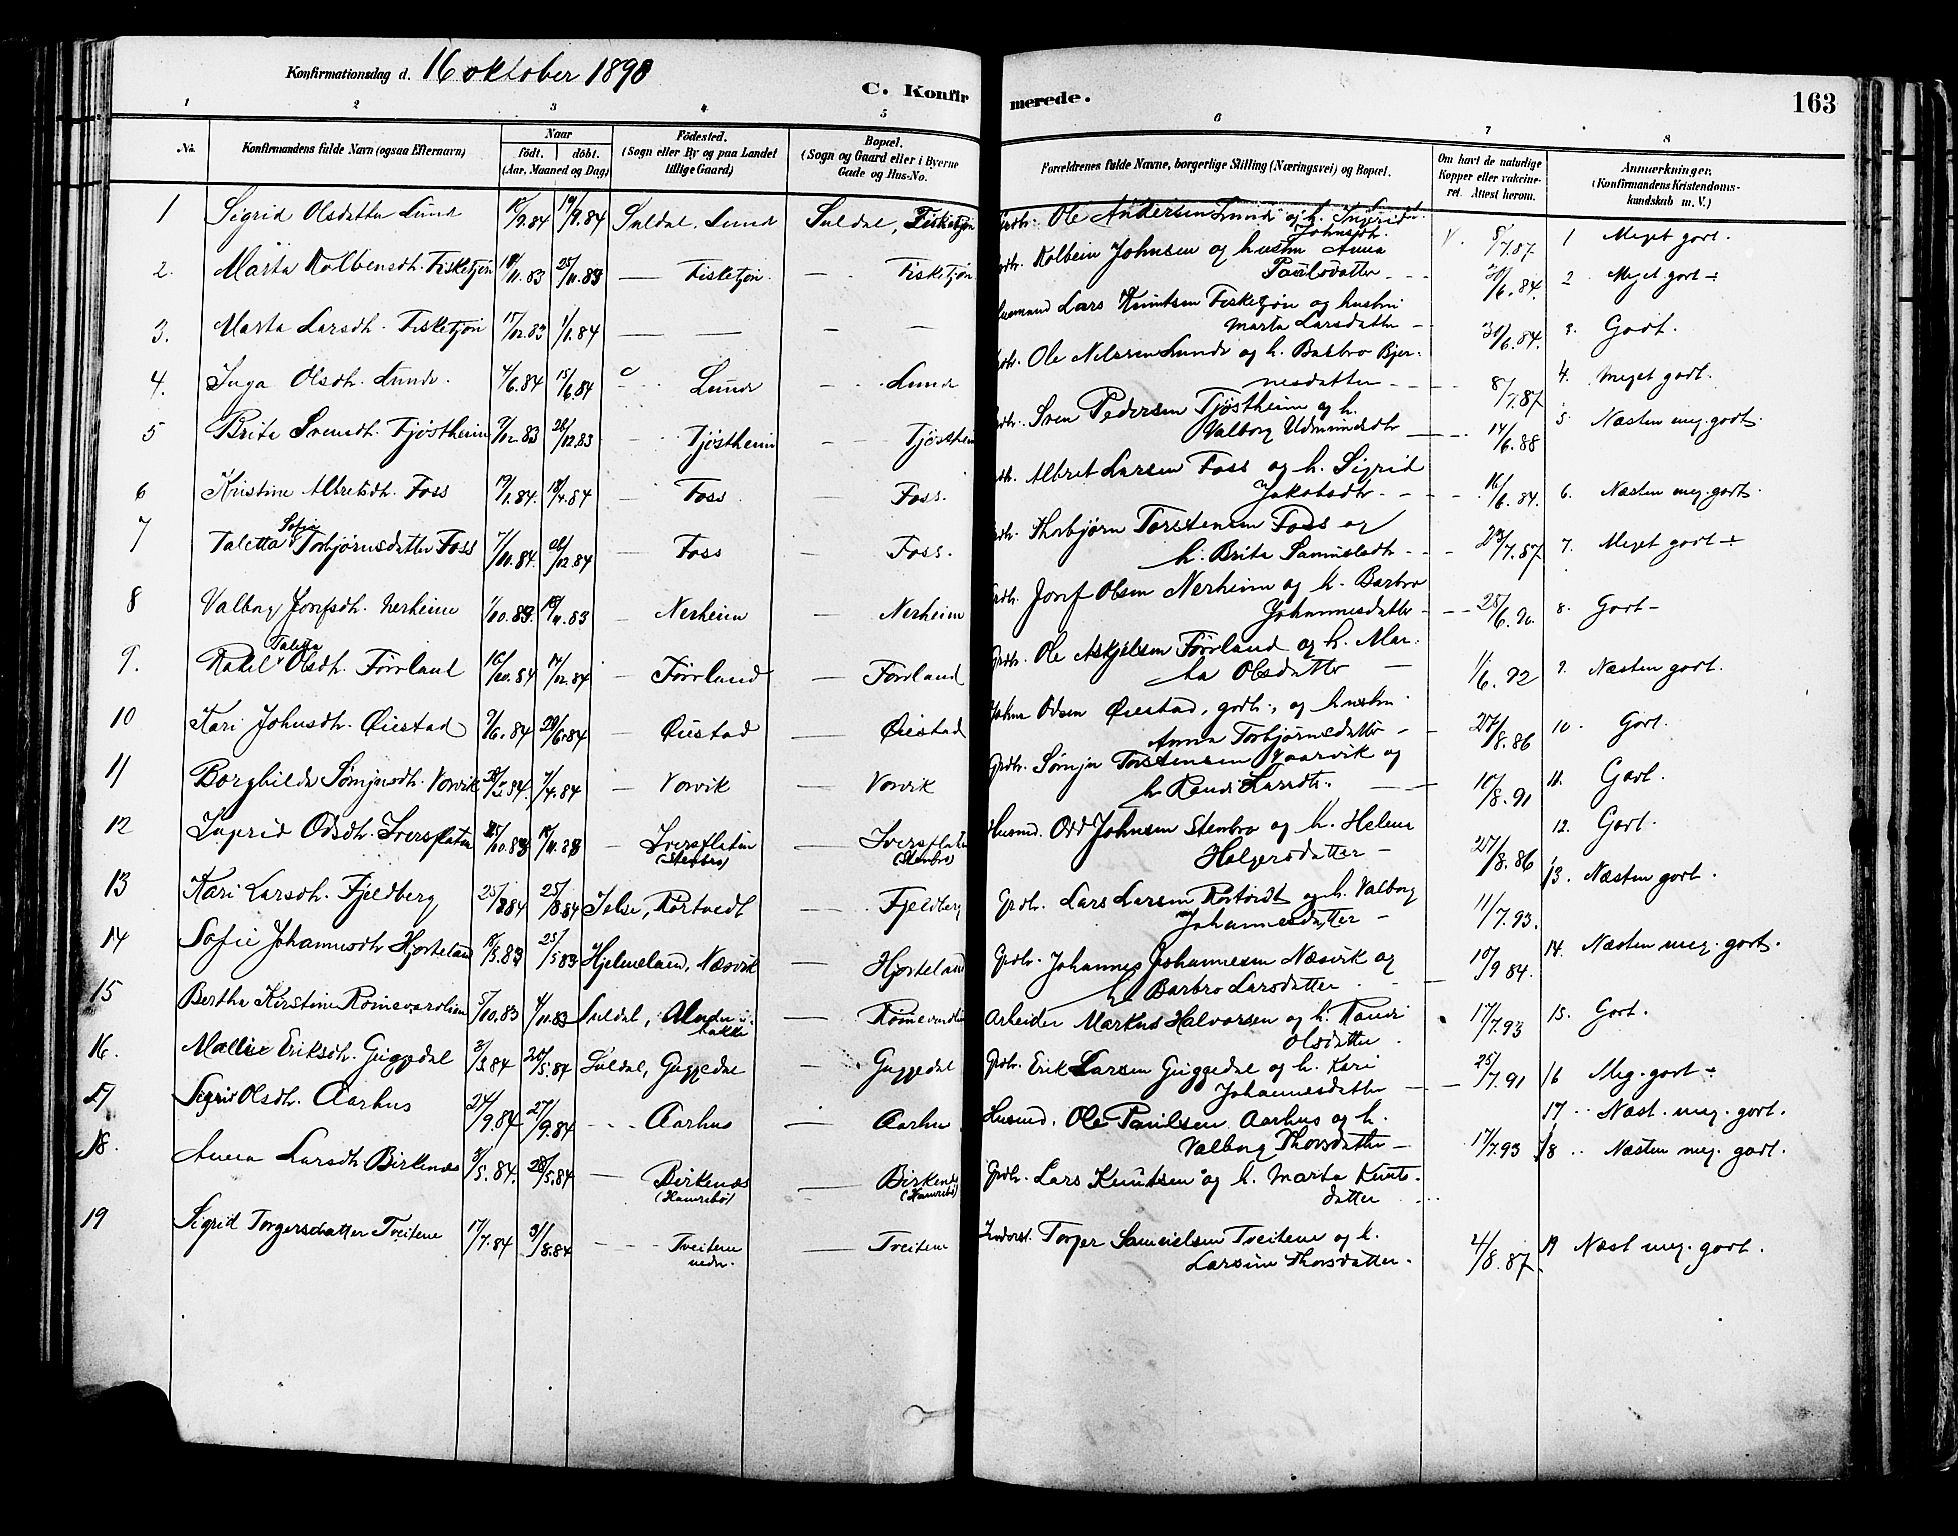 Konfirmationsdag d. 16 oktober 1898
C. Konfirmerede.
163
1 2 3 4 5 6 7 8
No. Konfirmandens fulde Navn (ogsaa Efternavn) Naar født. døbt. (Aar, Maaned og Dag) Fødested. (Sogn eller By og paa Landet tillige Gaard) Bopæl. (Sogn og Gaard eller i Byerne Gade og Hus-No. Forældrenes fulde Navne, borgerlige Stilling (Næringsvei) og Bopæl. Om havt de naturlige Kopper eller vakcineret. Attest herom. Anmærkninger. (Konfirmandens Kristendomskundskab m. V.)
1 Sigrid Olsdatter Lund Suldal, Lund Suldal, Fisketjøn Ole Andersen Lunde og h. Ingerid Johnsdt. 8/7.87 1 Meget godt.
2. Marta Kolbensdt. Fisketjøn 25/11.83 — Fisketjøn. — Fisketjøn Kolbein Johnsen og hustru Anna Paulsdatter 30/6.84. 2 Meget godt ÷
3. Marta Larsdt. Fisketjøn 17/12.83 1/1.84 — — — — Lars Knutsen Fisketjøn og hustru Marta Larsdatter 30/6.84. 3. Godt.
4. Inga Olsdt. Lunde. 4/6.84 15/6.84 Lunde — Lunde Ole Nilssen Lunde og h. Barbro Bjernesdatter 8/7.87 4. Meget godt.
5 Brita Svensdt. Tjøstheim 9/12.83 26/12.83 Tjøstheim — Tjøstheim Sven Pedersen Tjøstheim og h. Valborg Udmundsdtr 14/6.88 5 Næsten meg. godt.
6 Kristine Albretsdt. Foss — Foss. — Foss. Albret Larsen Foss og h. Sigrid Jakobsdtr 16/6.84. 6. Næsten meg. godt.
7 Taletta Sofie Torbjørnsdatter Foss 7/11.84 26/12.84 — Foss — Foss. Thorbjørn Torstensen Foss og h. Brita Samuelsdtr 23/7.87 7. Meget godt ÷
8 Valborg Josefsdt. Nerheim 1/10.83 — Nerheim — Nerheim Josef Olsen Nerheim og h. Barbro Johannesdatter 8. Godt —
9. Rakel Taletta Olsdt. Førrland 16/10.84 14/12.84 — Førrland — Førrland Grdbr. Ole Askjelsen Førrland og h. Marta Olsdatter 1/6.92 9. Næsten godt.
10 Kari Johnsdt. Øiestad 9/6.84 29/6.84 — Øiestad — Øiestad Johan Odsen Øiestad, grdb., og hustru Anna Torbjørnsdatter 27/8.86 10. Godt.
11 Borghilde Sømjesdt. Vorvik 7/4.84 — Vorvik — Vorvik Grdbr. Sømje Torstensen Vaarvik og h. Randi Larsdt. 10/8.91 11. Godt.
12 Ingrid Odsdt. Iversflaten — Iversflaten (Stenbro) Iversflaten (Stenbro) Husmd. Odd Johnsen Stenbro og h. Helene Helgersdatter 27/8.86 12. Godt.
13 Kari Larsdt. Fjeldberg 25/8.84 Jelse, Rortvedt — Fjeldberg Grdbr. Lars Larsen Rortvedt og h. Valborg Johannesdatter 11/7.93. 13. Næsten godt.
14 Sofie Johannesdtr Hjorteland 25/5.83 Hjelmeland, Næsvik — Hjorteland Grdbr. Johannes Johannesen Næsvik og h. Barbro Larsdatter 10/9.84. 14. Næsten meg. godt.
15 Bertha Kirstine Romevarolien 5/10.83 4/11.83 Suldal, — Arbeider Markus Halvorsen og h. Randi Olsdatter 17/7.93 15. Godt.
16. Malline Eriksdt. Guggedal 3/5.84 Suldal, Guggedal — Guggedal Grdbr. Erik Larsen Guggedal og h. Kari Johannesdatter 25/7.91 16 Meg. godt ÷
17 Sigrid Olsdt. Aarhus 24/9.84 27/9.84 Aarhus — Aarhus Husmd. Ole Paulsen Aarhus og h. Valborg Thorsdatter 17/7.93 17 Næst. meg. godt.
18. Anna Larsdt Birkenæs 3/5.84. 28/5.84 — Birkenæs (Hamrebø) — Birkenæs (Hamrebø) Grdbr. Lars Knutsen og h. Marta Knutsdatter 18 Næsten meg. godt.
19 Sigrid Torgersdatter Tveitene 17/7.84 3/8.84 Tveitene nedr. — Tveitene Torger Samuelsen Tveitene og h. Larsine Thorsdatter. 4/8.87 19 Næst meg. godt.